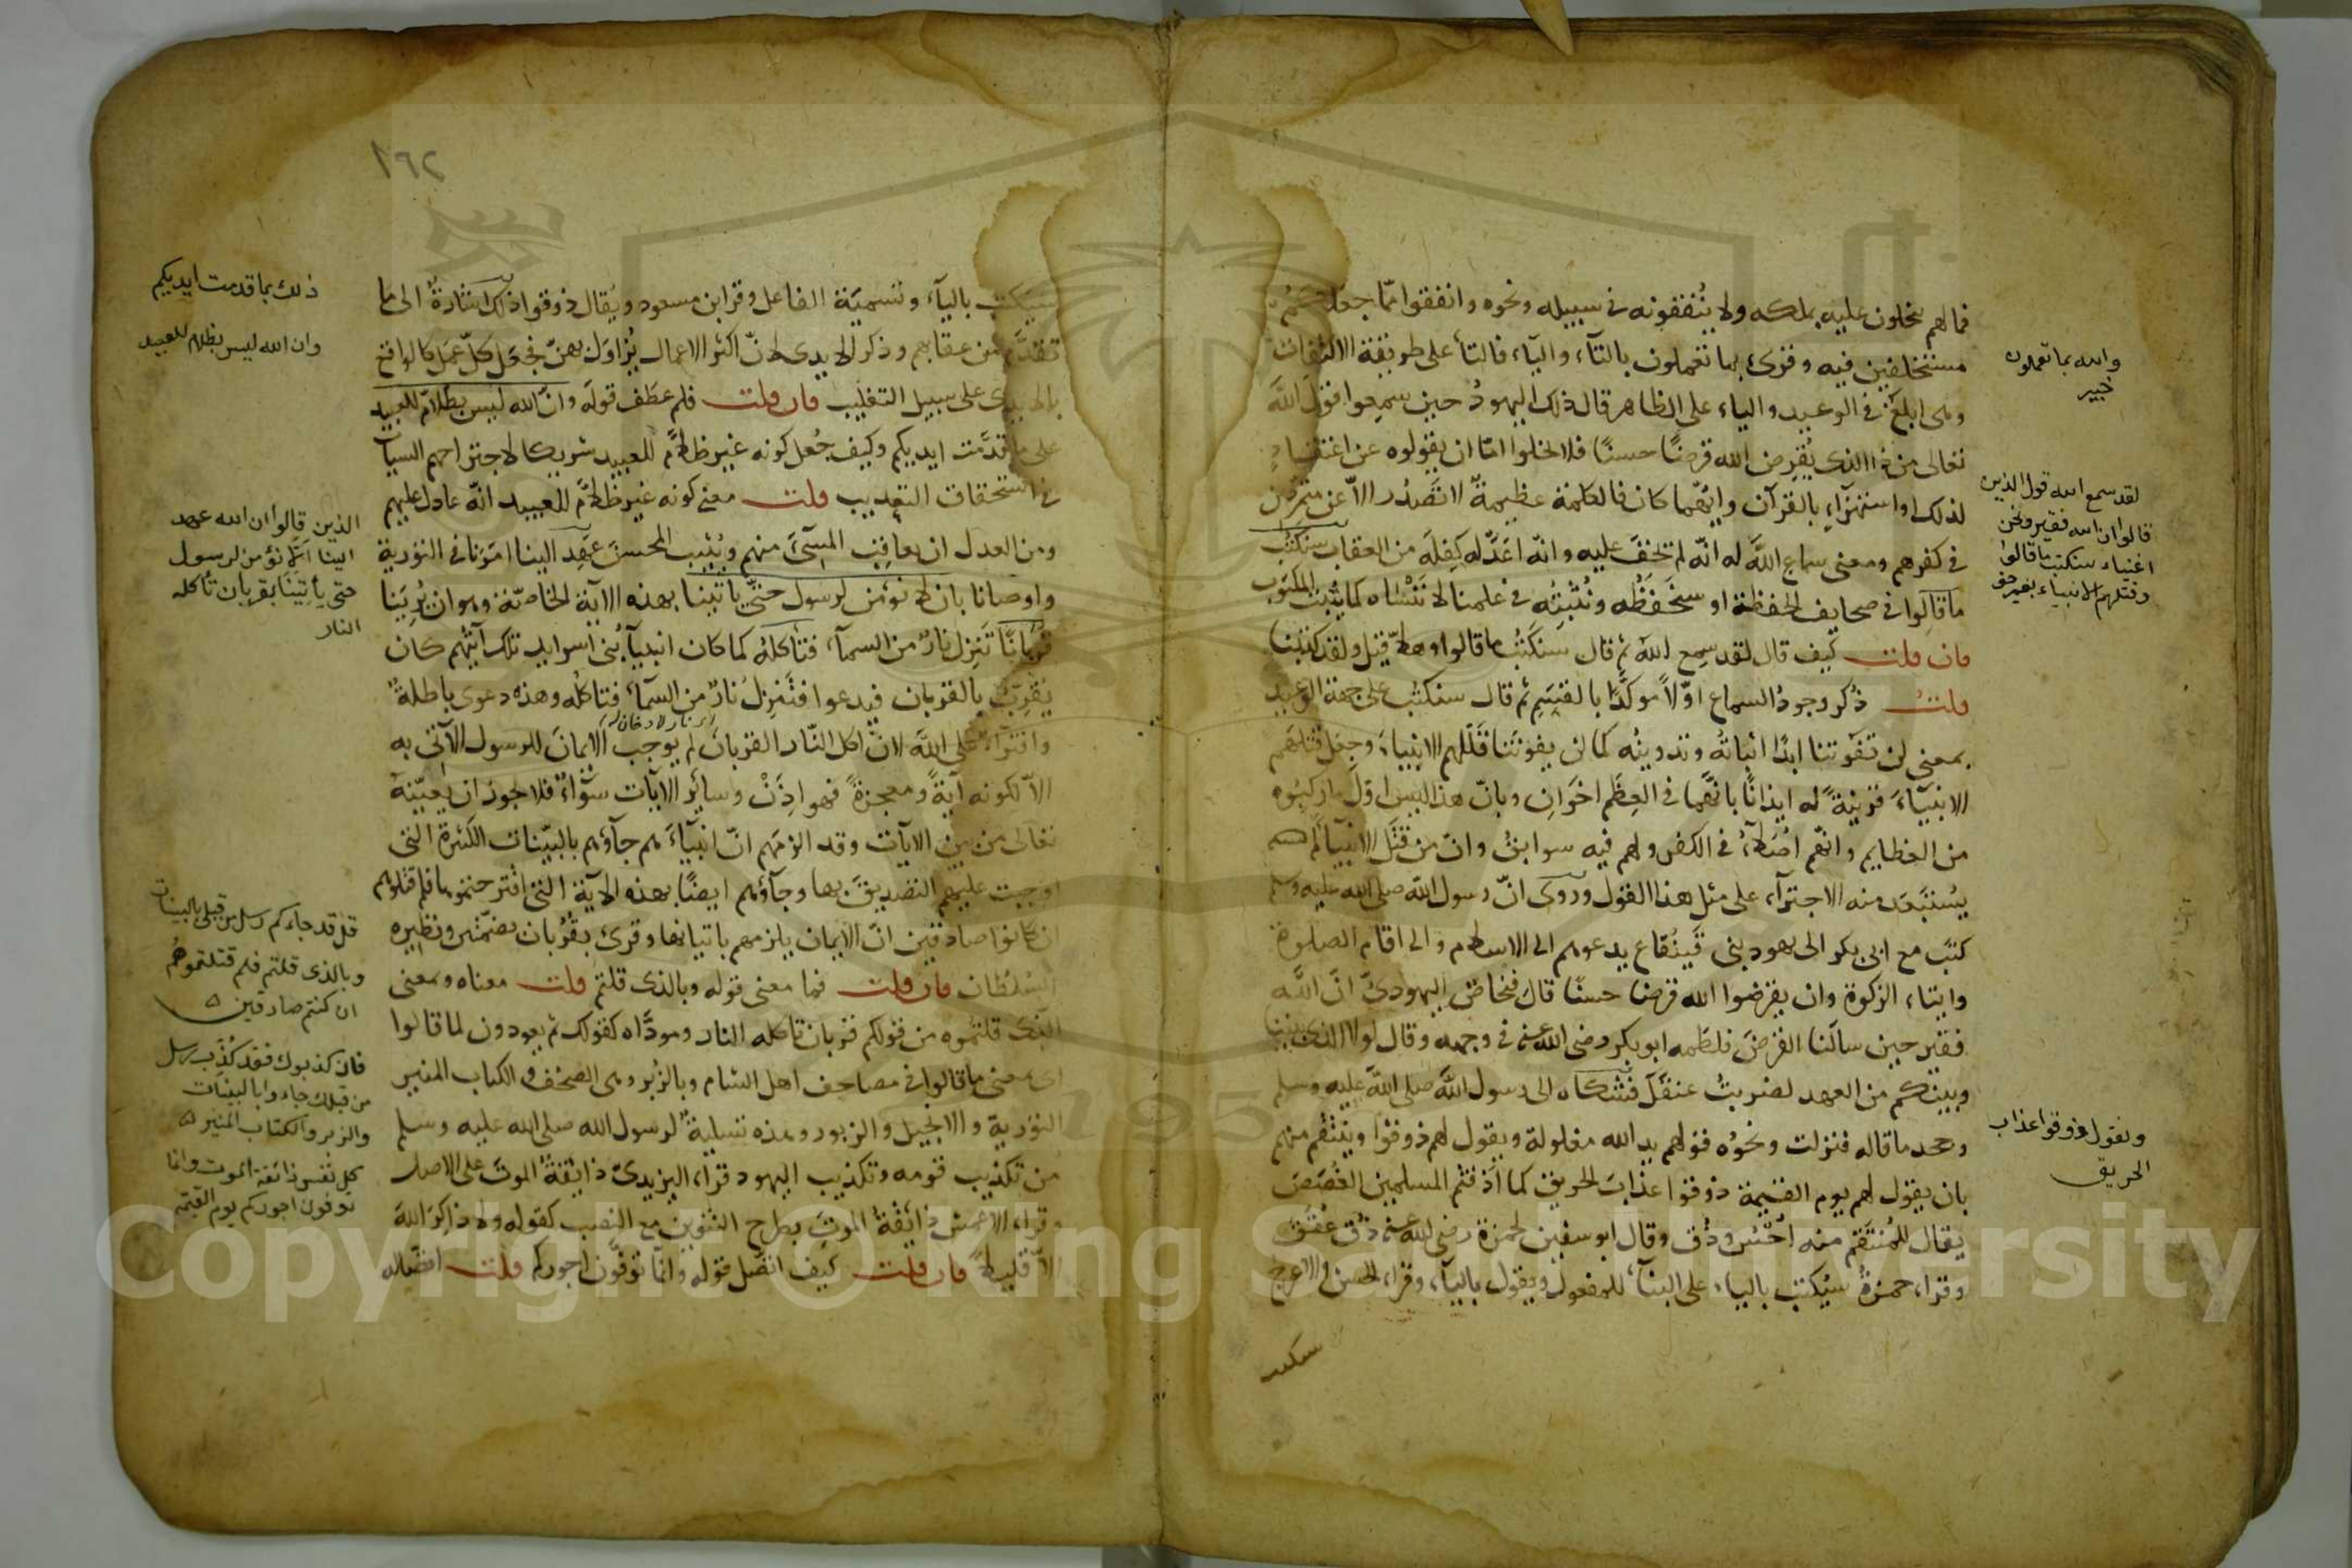 فما لهم يبخلون عليه بملكه ولا ينفقونه فى سبيله ونحوه وانفقوا مما جعلكم
مستخلفين فيه وقرئ بما تعملون بالتاء والياء فالتاء على طريقة الالتفات
وهى ابلغ فى الوعيد والياء على الظاهر قال ذلك اليهود حين سمعوا قول الله
تعالى من ذا الذى يقرض الله قرضا حسنا فلا يخلوا اما ان يقولوه عن اعتقاد
لذلك او استهزاء بالقرآن وايهما كان فالكلمة عظيمة لا تصدر الا عن متمردين
فى كفرهم ومعنى سماع الله له انه لم تخف عليه وانه اعد له كفله من العقاب سنكتب
ما قالوا فى صحايف الحفظة او سنحفظه ونثبته فى علمنا لا ننساه كما يثبت المكتوب
فان قلت كيف قال لقد سمع الله ثم قال سنكتب ما قالوا وهلا قيل ولقد كتبنا
قلت ذكر وجود السماع اولا موكدا بالقسم ثم قال سنكتب على جهة الوعيد
بمعنى لن تفوتنا ابدا اثباته وتدوينه كما لن يفوتنا قتلهم الانبياء وجعل قتلهم
الانبياء قرينة له ايذانا بانهما فى العظم اخوان وبان هذا ليس اول ما ركبوه
من العظايم وانهم اصلاء فى الكفر ولهم فيه سوابق وان من قتل الانبياء لم
يستبعد منه الاجتراء على مثل هذا القول وروى ان رسول الله صلى الله عليه وسلم
كتب مع ابى بكر الى يهود بنى قينقاع يدعوهم الى الاسلام والى اقام الصلوة
وايتاء الزكوة وان يقرضوا الله قرضا حسنا قال فنخاص اليهودى ان الله
فقير حين سالنا القرض فلطمه ابو بكر رضى الله عنه فى وجهه وقال لولا الذى بيننا
وبينكم من العهد لضربت عنقك فشكاه الى رسول الله صلى الله عليه وسلم
وجحد ما قاله فنزلت ونحوه قولهم يد الله مغلولة ويقول لهم ذوقوا وينتقم منهم
بان يقول لهم يوم القيمة ذوقوا عذاب الحريق كما اذقتم المسلمين الغصص
يقال للمنتقم منه احس وذق وقال ابو سفين لحمزة رضى الله عنه ذق عقق
وقراء حمزة سيكتب بالياء على البناء للمفعول ويقول بالياء وقراء الحسن والاعرج
والله بما تعملون
خبير
لقد سمع الله قول الذين
قالوا ان الله فقير ونحن
اغنياء سنكتب ما قالوا
وقتلهم الانبياء بغير حق
ونقول ذوقوا عذاب
الحريق
١٩٢
سيكتب بالياء وتسمية الفاعل وقرا ابن مسعود ويقال ذوقوا ذلك اشارة الى ما
تقدم من عقابهم وذكر الايدى لان اكثر الاعمال يزاول بهن فجعل كل عمل كالواقع
بالايدى على سبيل التغليب فان قلت فلم عطف قوله وان الله ليس بظلام للعبيد
على ما قدمت ايديكم وكيف جعل كونه غير ظلام للعبيد شريكا لاجتراحهم السيآت
فى استحقاق التعذيب قلت معنى كونه غير ظلام للعبيد انه عادل عليهم
ومن العدل ان يعاقب المسئ منهم ويثيب المحسن عهد الينا امرنا فى التورية
واوصانا بان لا نؤمن لرسول حتى ياتينا بهذه الآية الخاصة وهو ان يرينا
قربانا تنزل نار من السماء فتأكله كما كان انبياء بنى اسرايل تلك آيتهم كان
يقرب بالقربان فيدعوا فتنزل نار من السماء فتاكله وهذه دعوى باطلة
وافتراء على الله لان اكل النار القربان لم يوجب الايمان للرسول الآتى به
الا لكونه آية ومعجزة فهو اذن وساير الآيات سواء فلا يجوز ان يعينه
تعالى من بين الآيات وقد الزمهم ان انبياءهم جاؤهم بالبينات الكثرة التى
اوجبت عليهم التصديق بها وجاؤهم ايضا بهذه الآية التى اقترحتموها فلم قتلوهم
ان كانوا صادقين ان الايمان يلزمهم باتيانها وقرئ بقربان بضمتين ونظيره
السلطان فان قلت فما معنى قوله وبالذى قلتم قلت معناه ومعنى
الذى قلتموه من قولكم قربان تاكله النار ومؤداه كقولك ثم يعودون لما قالوا
اى لمعنى ما قالوا فى مصاحف اهل الشام وبالزبر وهى الصحف والكتاب المنير
التورية والانجيل والزبور وهذه تسلية لرسول الله صلى الله عليه وسلم
من تكذيب قومه وتكذيب اليهود قراء اليزيدى ذائقة الموت على الاصل
وقراء الاعمش ذائقة الموت بطرح التنوين مع النصب كقوله ولا ذاكر الله
الا قليلا فان قلت كيف اتصل قوله وانما توفون اجوركم قلت اتصاله
ذلك بما قدمت ايديكم
وان الله ليس بظلام للعبيد
الذين قالوا ان الله عهد
الينا الا نؤمن لرسول
حتى يأتينا بقربان تأكله
النار
قل قد جاءكم رسل من قبلى بالبينات
وبالذى قلتم فلم قتلتموهم
ان كنتم صادقين
فان كذبوك فقد كذب رسل
من قبلك جاءوا بالبينات
والزبر والكتاب المنير
كل نفس ذائقة الموت وانما
توفون اجوركم يوم القيمة
Copyright © King Saud University